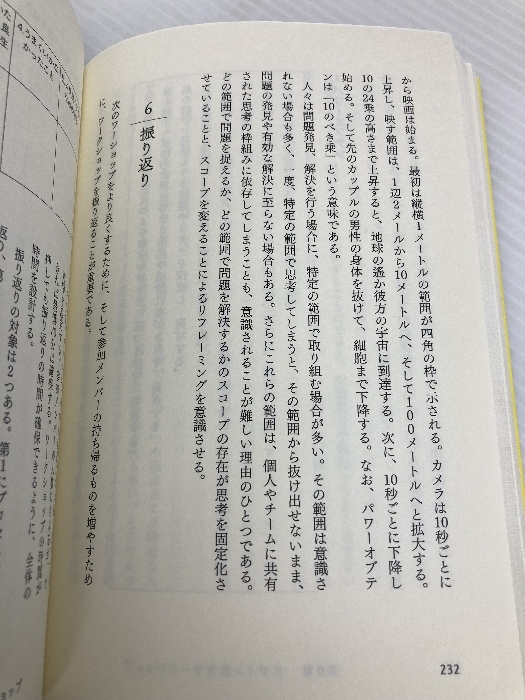 から映画は始まる。最初は縦横1メートルの範囲が四角の枠で示される。カメラは10秒ごとに
上昇し、映す範囲は、1辺2メールから10メートルへ、そして100メートルへと拡大する。
10の24乗の高さまで上昇すると、地球の遥か彼方の宇宙に到達する。次に、10秒ごとに下降し
始める。そして先のカップルの男性の身体を抜けて、細胞まで下降する。なお、パワーオブテ
ンは「10のべき乗」という意味である。
人々は問題発見、解決を行う場合に、特定の範囲で取り組む場合が多い。その範囲は意識さ
れない場合も多く、一度、特定の範囲で思考してしまうと、その範囲から抜け出せないまま、
問題の発見や有効な解決に至らない場合もある。さらにこれらの範囲は、個人やチームに共有
された思考の枠組みに依存してしまうことも、意識されることが難しい理由のひとつである。
どの範囲で問題を捉えるか、どの範囲で問題を解決するかのスコープの存在が思考を固定化さ
せていることと、スコープを変えることによるリフレーミングを意識させる。
6 振り返り
次のワークショップをより良くするために、そして参加メンバーの持ち帰るものを増やすため
に、ワークショップを振り返ることが重要である。
232
4.うまくいかな
かったこと
時間を設計する。
振り返りの対象は2つある。第1にプロセ